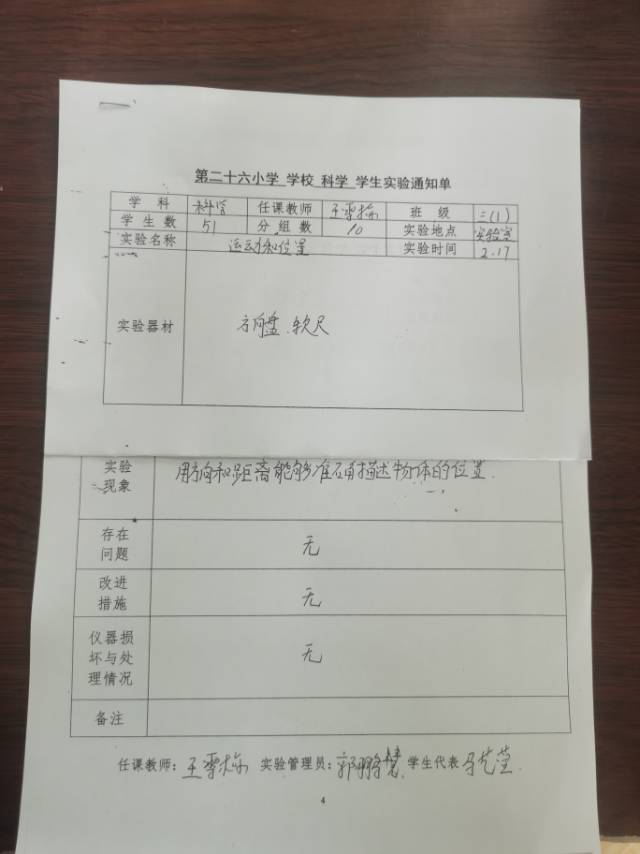 第二十六小学 学校 科学 学生实验通知单
学科 科学 任课教师 王雪栋 班级 三(1)
学生数 51 分组数 10 实验地点 实验室
实验名称 运动和位置 实验时间 2.17
实验器材 方向盘、软尺
实验现象 用方向和距离能够准确描述物体的位置.
存在问题 无
改进措施 无
仪器损坏与处理情况 无
备注
任课教师: 王雪栋 实验管理员: 郭 学生代表 马艺莹
4